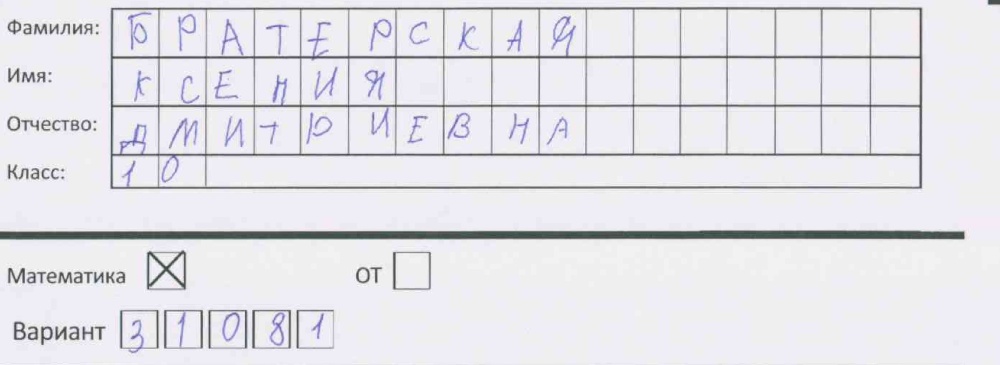 Фамилия: БРАТЕРСКАЯ
Имя: КСЕНИЯ
Отчество: ДМИТРИЕВНА
Класс: 10
Математика ☒ ОТ ☐
Вариант 31081